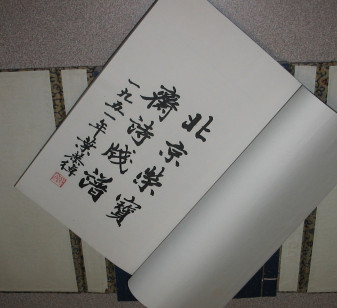 北京荣寶
斋詩牋譜
一九五一年葉恭綽